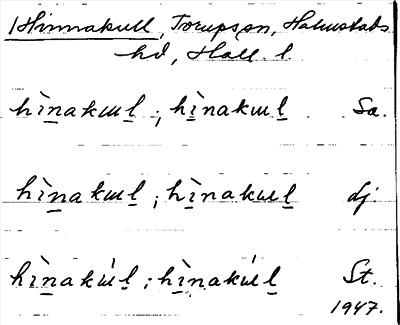 Hinnakull, Torups sn, Halmstads
hd, Hall. l.
hìn̲akɯl̲ ; hì̲nakɯl̲ Sa.
hìn̲akɯl̲ ; hì̲nakɯl̲ dj
hìn̲akɯ́l̲ ; hì̲nakɯ́l̲ St.
1947.